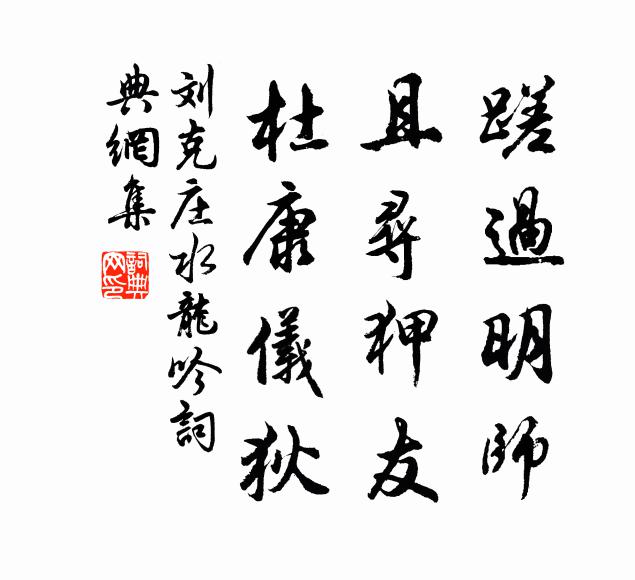 蹉過明師
且尋狎友
杜康儀狄
刘克庄水龍吟詞
典網集
詞典
网印